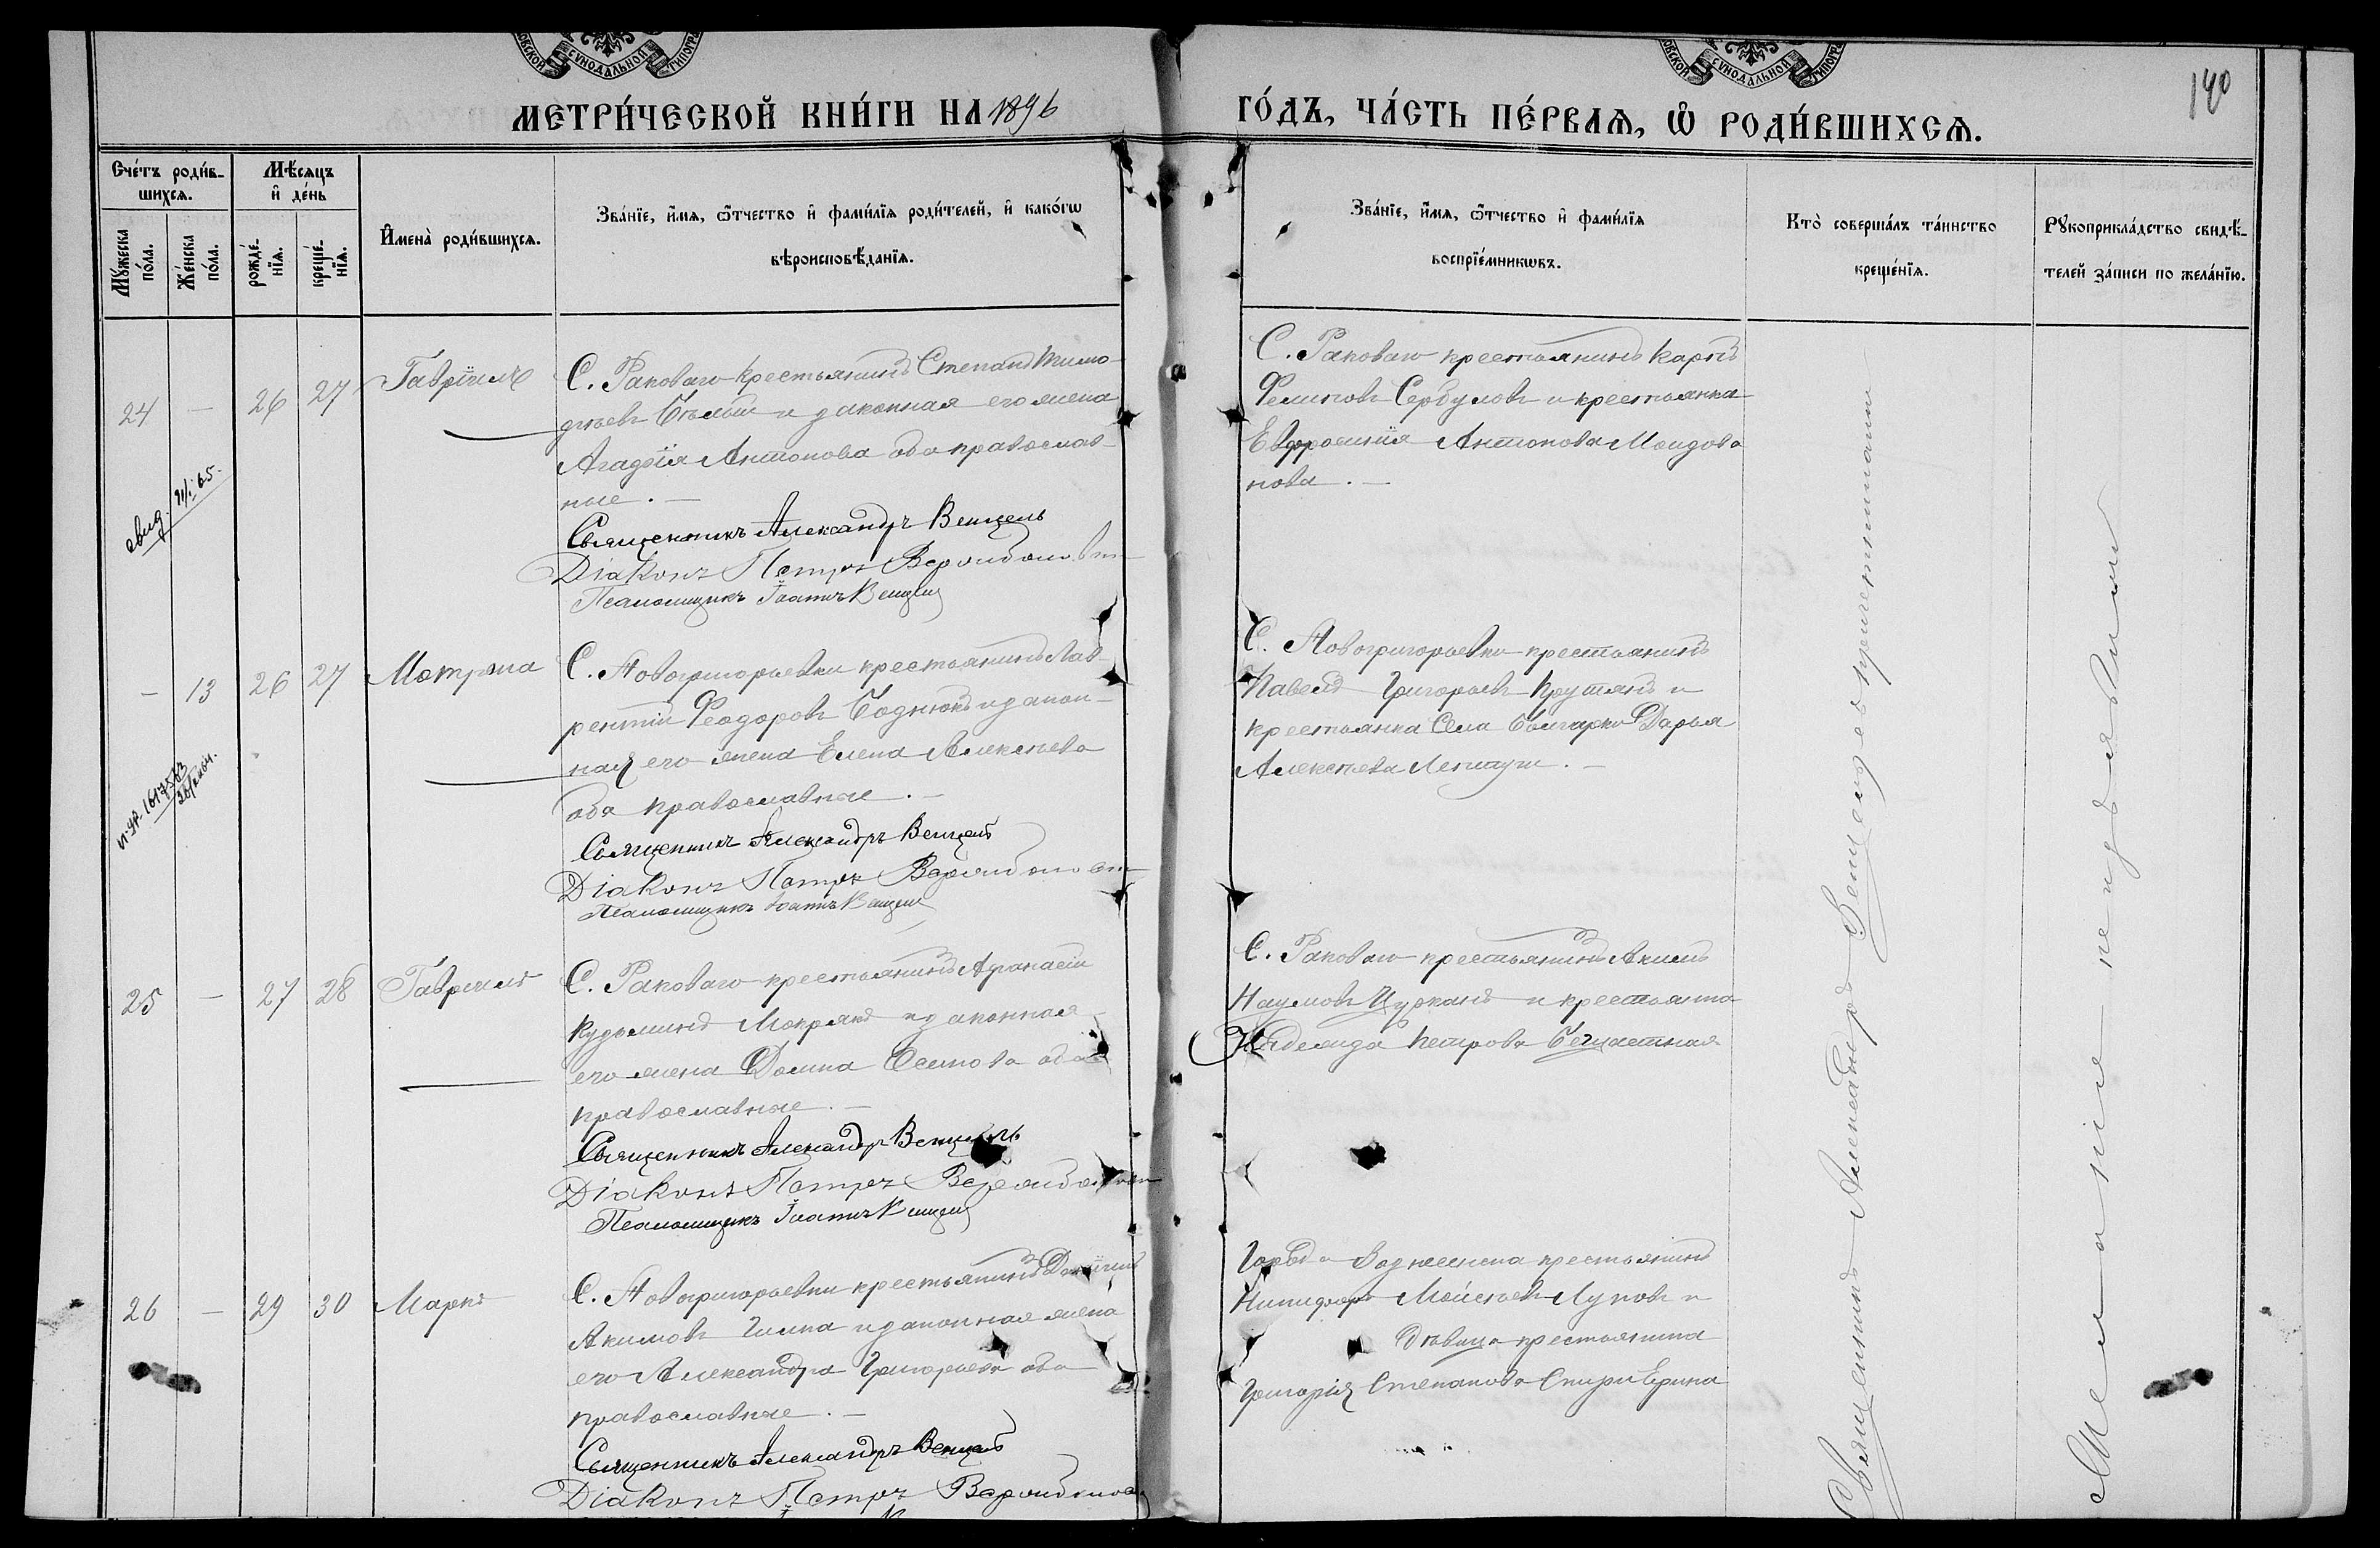 МЕТРИ́ЧЕСКОЙ КНИ́ГИ НА 1896
ГО́ДЪ, ЧА́СТЬ ПЕ́РВАѦ, Ѡ҆ РОДИ́ВШИХСѦ.
140
Сче́тъ роди́в-
шихсѧ.
Мꙋ́жеска
по́ла.
Же́нска
по́ла.
Мѣ́сѧцъ
и҆ де́нь
рожде́-
нїѧ.
креще́-
нїѧ.
И҆мена̀ роди́вшихсѧ.
Зва́нїе, и҆́мѧ, ѻ҆́тчество и҆ фами́лїѧ роди́телей, и҆ како́гѡ
вѣроисповѣ́данїѧ.
Зва́нїе, и҆́мѧ, ѻ҆́тчество и҆ фами́лїѧ
воспрїе́мникѡвъ.
Кто̀ соверша́лъ та́инство
креще́нїѧ.
Рꙋкоприкла́дство свидѣ́-
телей за́писи по жела́нїю.
24 — 26 27 Гавріилъ
С. Раковаго крестьянинъ Степанъ Тимо-
ѳеевъ Бѣлый и законная его жена
Агаѳія Антонова оба православ-
ные. —
Священникъ Александръ Венцель
Діаконъ Петръ
Псаломщикъ Іоаннъ Венцель
С. Раковаго крестьянинъ Карпъ
Филиповъ Сербуловъ и крестьянка
Евфросинія Антонова Молдова
нова. —
свид.
— 13 26 27 Матрона
С. Новогригорьевки крестьянинъ Лав-
рентій Ѳеодоровъ Боднюкъ и закон-
ная его жена Елена Алексѣева
оба православные. —
Священникъ Александръ Венцель
Діаконъ Петръ
Псаломщикъ Іоаннъ Венцель
С. Новогригорьевки крестьянинъ
Павелъ Григорьевъ Крутякъ и
крестьянка Села Болгарки Дарья
Алексѣева. —
25 — 27 28 Гавріилъ
С. Раковаго крестьянинъ Афанасій
Кузьминъ Мокрякъ и законная
его жена Домна Осипова оба
православные. —
Священникъ Александръ Венцель
Діаконъ Петръ
Псаломщикъ Іоаннъ Венцель
С. Раковаго крестьянинъ Акимъ
Наумовъ Цурканъ и крестьянка
Петрова Безчастная
26 — 29 30 Маркъ
С. Новогригорьевки крестьянинъ Даніилъ
Акимовъ и законная жена
его Александра Григорьева оба
православные. —
Священникъ Александръ Венцель
Діаконъ Петръ
Города Вознесенска крестьянинъ
Никифоръ Моисѣевъ Луповъ и
Дѣвица крестьянина
Григорія Степанова Ирина
Священникъ Александръ Венцель
Желанія не изъявили